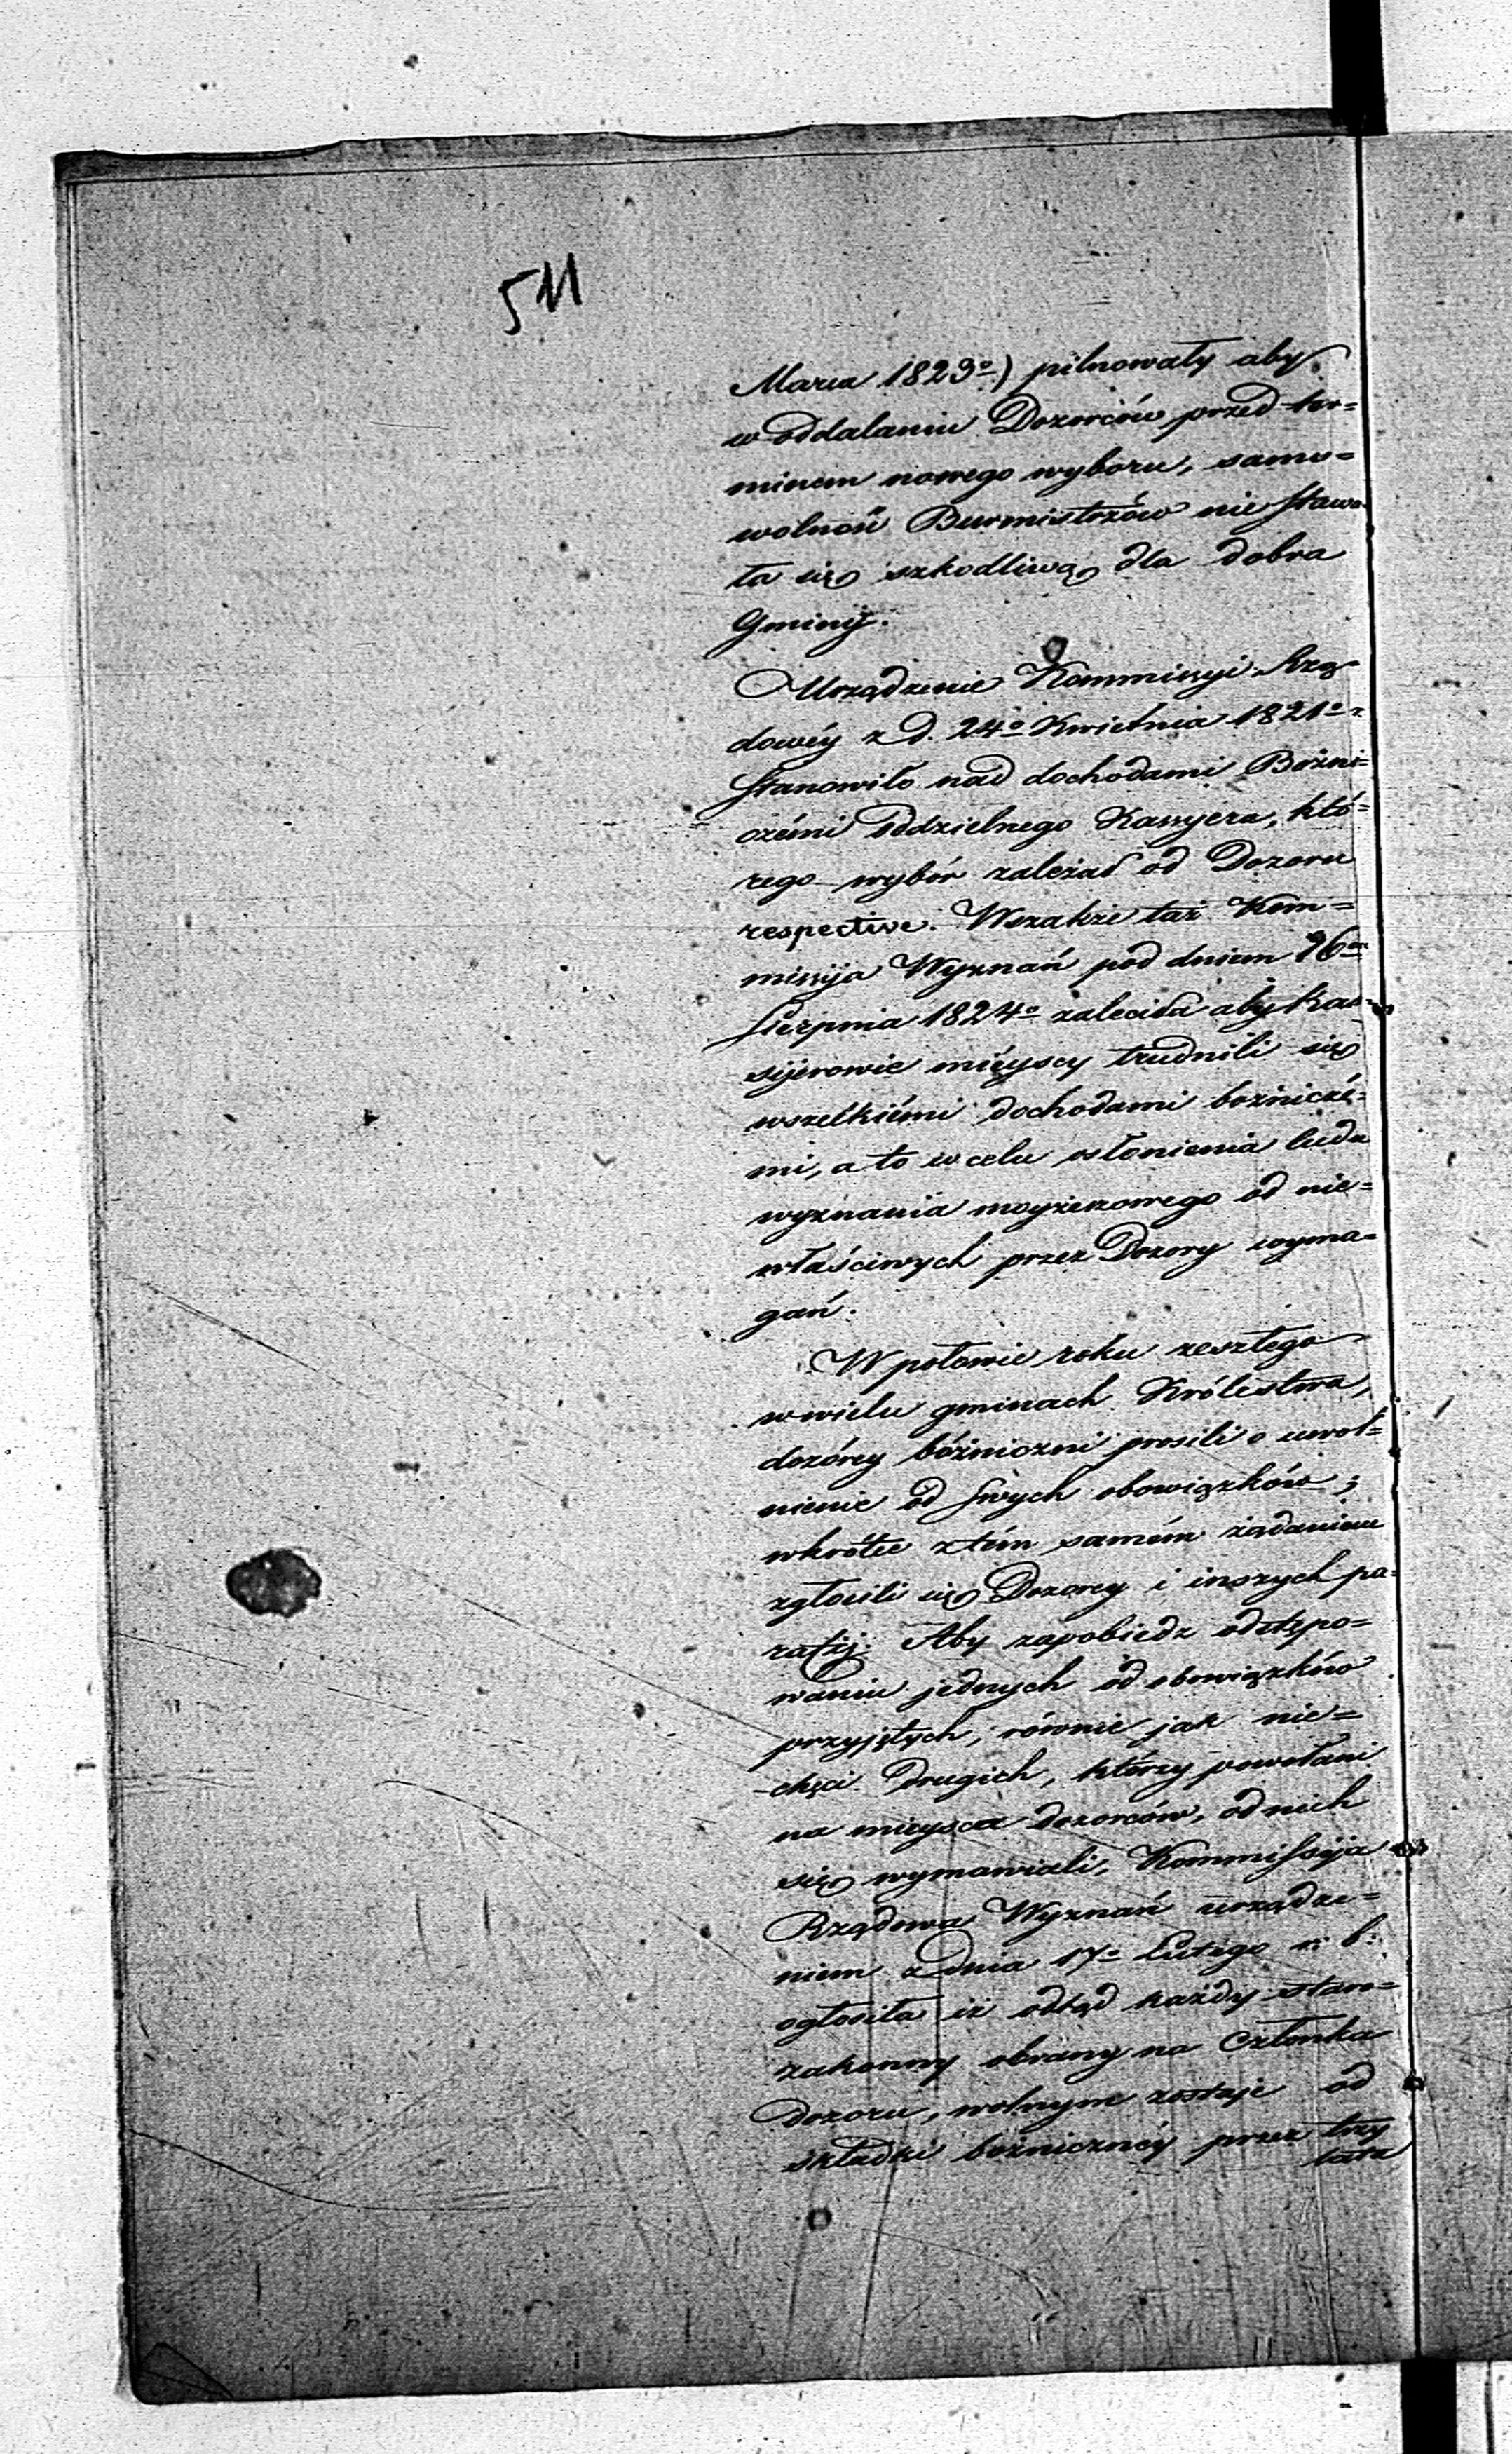 511
Marca 1823º) pilnowały aby
w oddalaniu Dozorców przed ter=
minem nowego wyboru, samo=
wolność Burmistrzów nie stawa-
ła się szkodliwą dla dobra
Gminy.
Urządzenie Kommissyi Rzą-
dowéy z d. 24º Kwietnia 1821º
stanowiło nad dochodami Bożni=
czémi oddzielnego Kassyera, któ=
rego wybór zależał od Dozoru
respective. Wszakże taż Kom=
missyja Wyznań pod dniem 26
Sierpnia 1824º zaleciła aby Kas=
syjerowie miéyscy trudnili się
wszelkiémi dochodami bożniczé=
mi, a to w celu osłonienia ludu
wyznania moyżeszowego od nie=
właściwych przez Dozory wyma=
gań.
W połowie roku zeszłego
w wielu gminach Królestwa,
dozórcy bóżniczni prosili o uwol=
nienie od swych obowiązków;
wkrótce z tém samém żądaniem
zgłosili się Dozorcy i inszych pa=
rafij. Aby zapobiedz odstępo=
waniu jednych od obowiązków
przyjętych, równie jak nie=
chęci drugich, którzy powołani
na mieysca dozorców, od nich
się wymawiali, Kommissyja
Rządowa Wyznań urządze=
niem z dnia 17º Lutego r: b:
ogłosiła iż odtąd każdy staro=
zakonny obrany na Członka
Dozoru, wolnym zostaje od
składki bożnicznéy przez trzy
lata